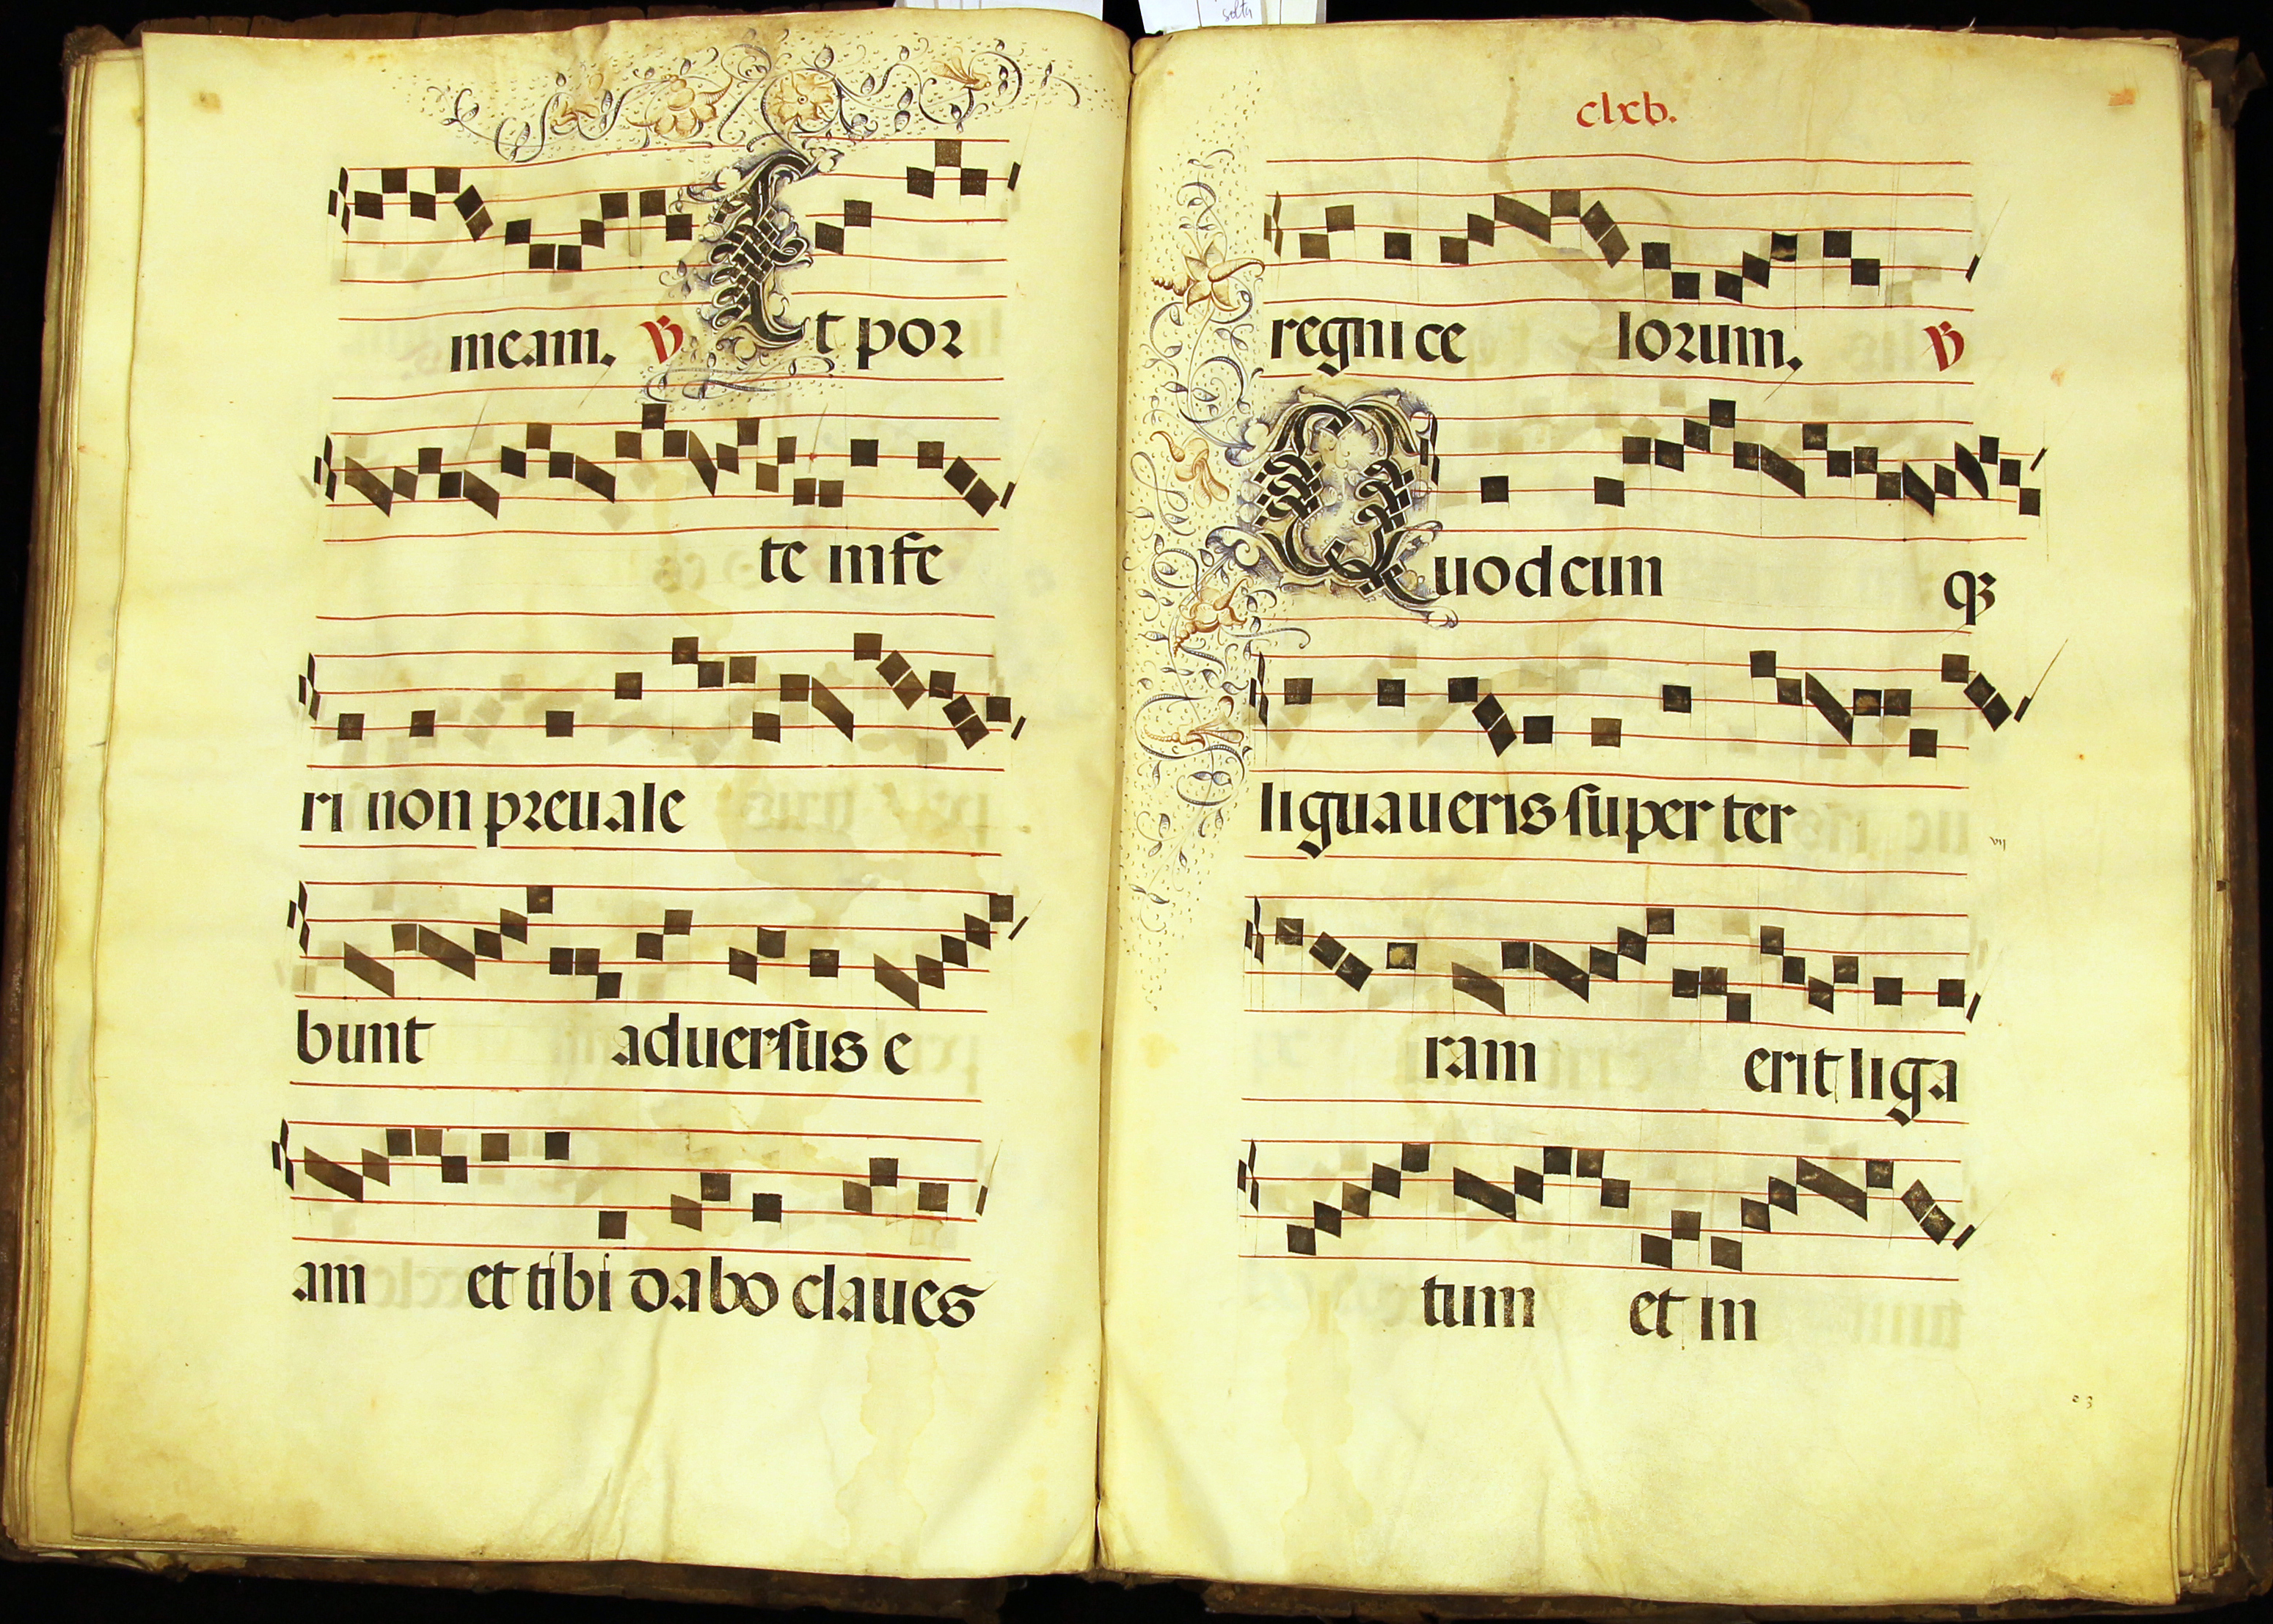 solta
meam. ℣ Et por
te infe
ri non preuale
bunt aduersus e
am et tibi dabo claues
clxv.
regni ce lorum. ℣
Quodcun qȝ
liguaueris super ter
vij
ram erit liga
tum et in